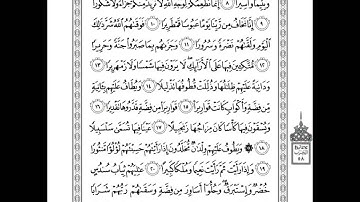 وَيَتِيمًا وَأَسِيرًا ٨ إِنَّمَا نُطْعِمُكُمْ لِوَجْهِ ٱللَّهِ لَا نُرِيدُ مِنكُمْ جَزَآءً وَلَا شُكُورًا
٩ إِنَّا نَخَافُ مِن رَّبِّنَا يَوْمًا عَبُوسًا قَمْطَرِيرًا ١٠ فَوَقَىٰهُمُ ٱللَّهُ شَرَّ ذَٰلِكَ
ٱلْيَوْمِ وَلَقَّىٰهُمْ نَضْرَةً وَسُرُورًا ١١ وَجَزَىٰهُم بِمَا صَبَرُوا۟ جَنَّةً وَحَرِيرًا
١٢ مُّتَّكِـِٔينَ فِيهَا عَلَى ٱلْأَرَآئِكِ لَا يَرَوْنَ فِيهَا شَمْسًا وَلَا زَمْهَرِيرًا ١٣
وَدَانِيَةً عَلَيْهِمْ ظِلَـٰلُهَا وَذُلِّلَتْ قُطُوفُهَا تَذْلِيلًا ١٤ وَيُطَافُ عَلَيْهِم بِـَٔانِيَةٍ
مِّن فِضَّةٍ وَأَكْوَابٍ كَانَتْ قَوَارِيرَا۠ ١٥ قَوَارِيرَا۟ مِن فِضَّةٍ قَدَّرُوهَا تَقْدِيرًا ١٦
وَيُسْقَوْنَ فِيهَا كَأْسًا كَانَ مِزَاجُهَا زَنجَبِيلًا ١٧ عَيْنًا فِيهَا تُسَمَّىٰ سَلْسَبِيلًا
١٨ وَيَطُوفُ عَلَيْهِمْ وِلْدَٰنٌ مُّخَلَّدُونَ إِذَا رَأَيْتَهُمْ حَسِبْتَهُمْ لُؤْلُؤًا مَّنثُورًا
١٩ وَإِذَا رَأَيْتَ ثَمَّ رَأَيْتَ نَعِيمًا وَمُلْكًا كَبِيرًا ٢٠ عَـٰلِيَهُمْ ثِيَابُ سُندُسٍ
خُضْرٌ وَإِسْتَبْرَقٌ وَحُلُّوٓا۟ أَسَاوِرَ مِن فِضَّةٍ وَسَقَىٰهُمْ رَبُّهُمْ شَرَابًا